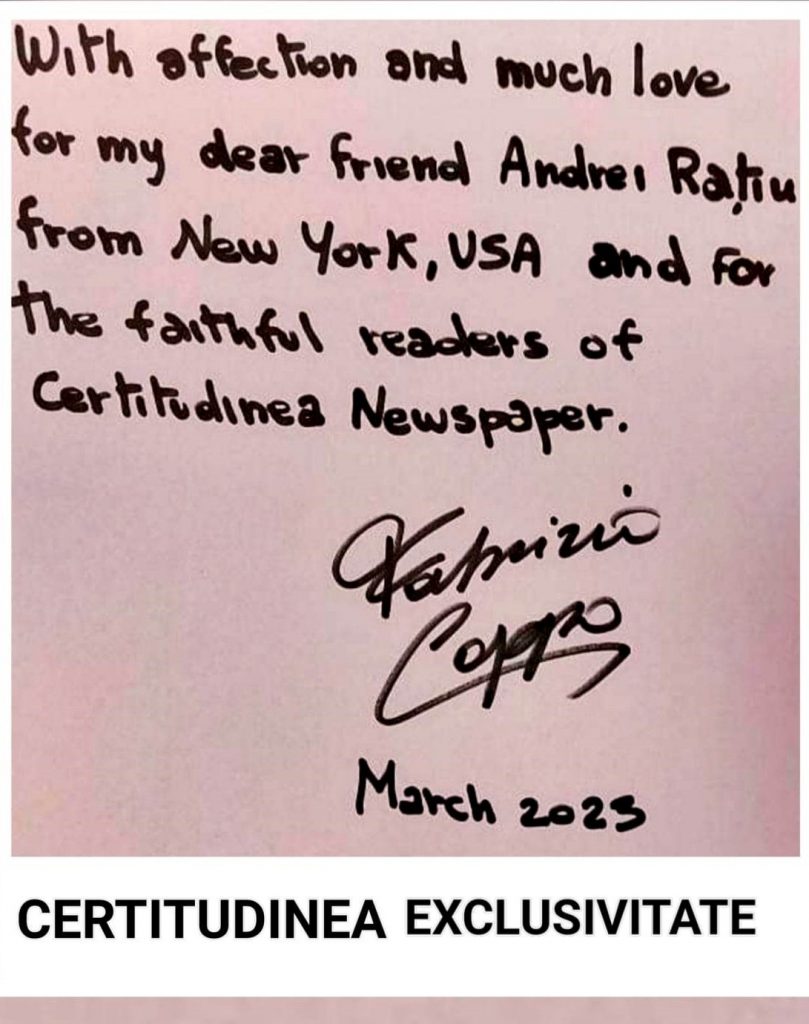 With affection and much love
for my dear friend Andrei Rațiu
from New York, USA and for
the faithful readers of
Certitudinea Newspaper.
Fabrizio
Coppo
March 2023
CERTITUDINEA EXCLUSIVITATE